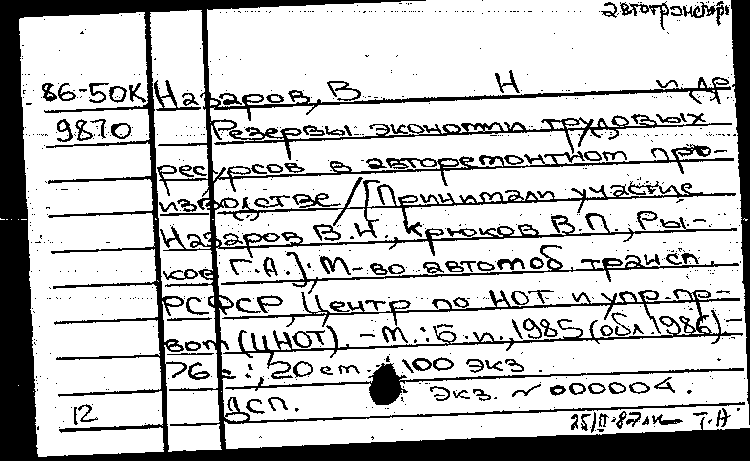 автотранспорт
86-50К Назаров, В Н и др
9870 Резервы экономии трудовых
ресурсов в авторемонтном про-
изводстве / [Принимали участие
Назаров В.Н., Крюков В.П., Ры-
ков Г.А.]; М-во автомоб. трансп.
РСФСР, Центр по НОТ и упр. пр-
вом (ЦНОТ). - М.: Б.и., 1985 (обл. 1986). -
76 с.; 20 см. - 100 экз.
Экз. № 000004.
12 ДСП.
Т.А